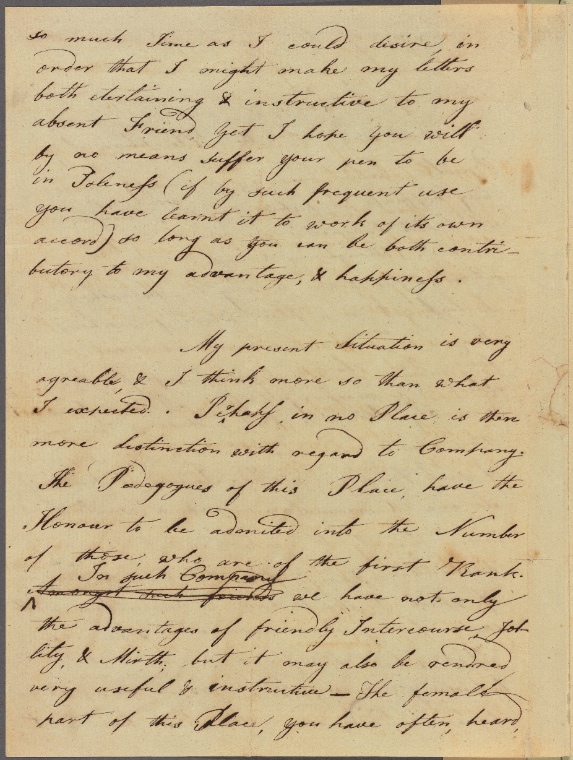 so much Time as I could desire in
order that I might make my letters
both itertaining & instructive to my
absent Friend yet I hope you will
by no means suffer your pen to be
in Idleness (if by such frequent use
you have learnt it to work of its own
accord) so long as you can be both contri-
butory to my advantage, & happiness.
My present Situation is very
agreable, & I think more so than what
I expected. Perhaps in no Place is there
more distinction with regard to Company.
The Pedegogues of this Place, have the
Honour to be admited into the Number
of those, who are of the first Rank.
In such Company
Amongst such friends we have not only
the advantages of friendly Intercourse, Jol
lity, & Mirth; but it may also be rendred
very useful & instructive — The female
part of this Place, you have often heard,